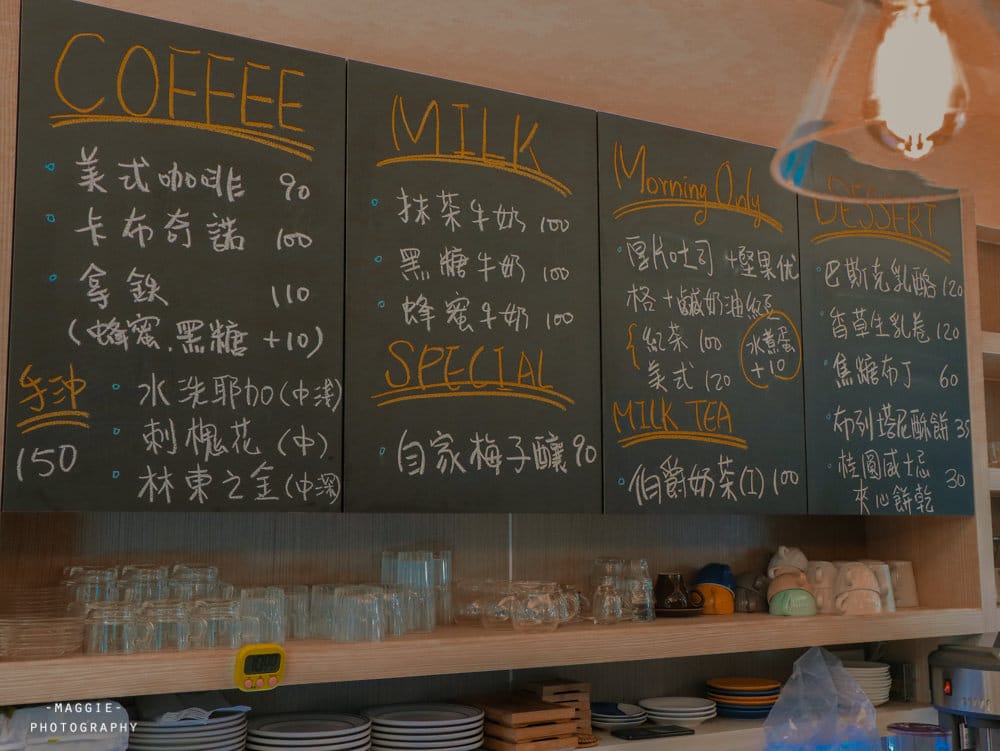 COFFEE
美式咖啡 90
卡布奇諾 100
拿鐵 110
(蜂蜜.黑糖 +10)
手沖
150
水洗耶加(中淺)
刺槐花(中)
林東之金(中深)
MILK
抹茶牛奶 100
黑糖牛奶 100
蜂蜜牛奶 100
SPECIAL
自家梅子釀 90
Morning Only
厚片吐司+堅果优
格+鹹奶油紅豆
{紅茶 100
美式 120
水煮蛋
+10
MILK TEA
伯爵奶茶(I) 100
DESSERT
巴斯克乳酪 120
香草生乳卷 120
焦糖布丁 60
布列塔尼酥餅 35
桂圓威士忌
夾心餅乾 30
-MAGGIE-
PHOTOGRAPHY